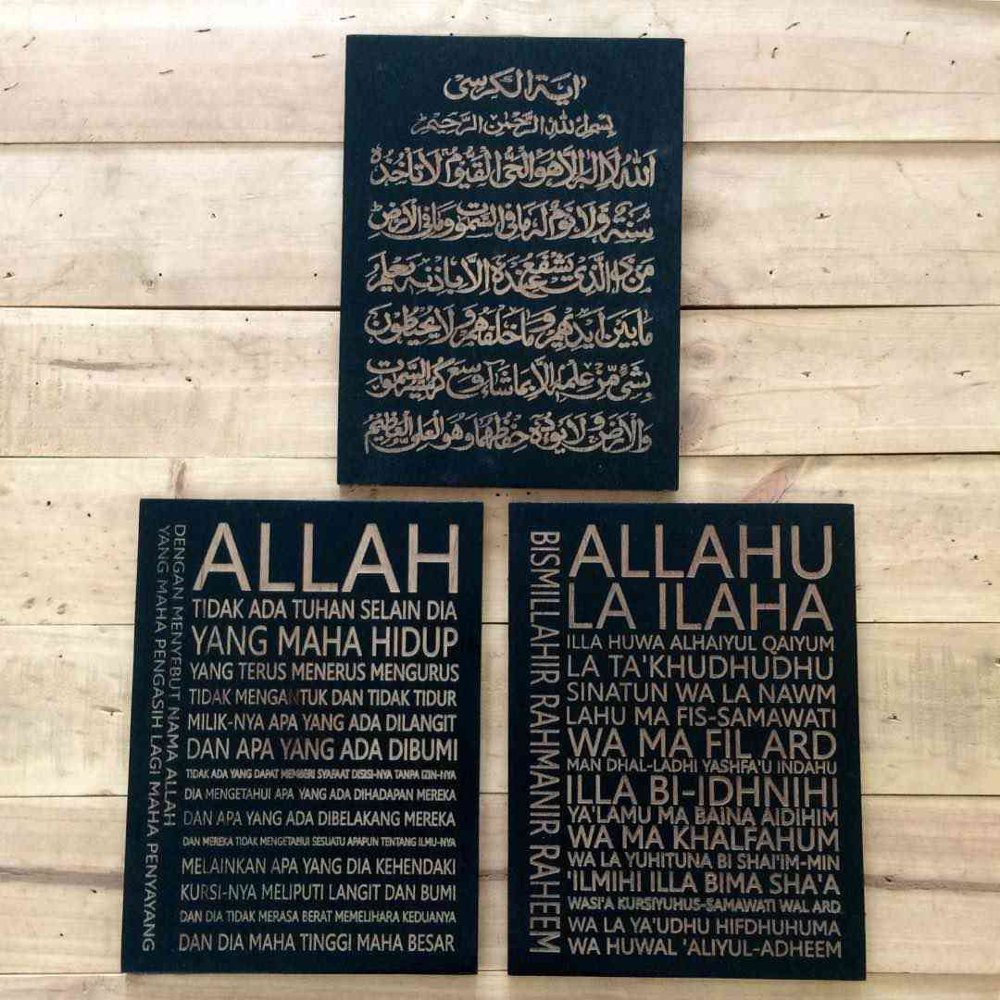 اية الكرسي
بسم الله الرحمن الرحيم
الله لا اله الا هو الحي القيوم لا تأخذه
سنة ولا نوم له ما في السموت وما في الأرض
من ذا الذي يشفع عنده الا باذنه يعلم
ما بين ايديهم وما خلفهم ولا يحيطون
بشئ من علمه الا بما شاء وسع كرسيه السموت
والارض ولا يؤده حفظهما وهو العلي العظيم
DENGAN MENYEBUT NAMA ALLAH
YANG MAHA PENGASIH LAGI MAHA PENYAYANG
ALLAH
TIDAK ADA TUHAN SELAIN DIA
YANG MAHA HIDUP
YANG TERUS MENERUS MENGURUS
TIDAK MENGANTUK DAN TIDAK TIDUR
MILIK-NYA APA YANG ADA DILANGIT
DAN APA YANG ADA DIBUMI
TIDAK ADA YANG DAPAT MEMBERI SYAFAAT DISISI-NYA TANPA IZIN-NYA
DIA MENGETAHUI APA YANG ADA DIHADAPAN MEREKA
DAN APA YANG ADA DIBELAKANG MEREKA
DAN MEREKA TIDAK MENGETAHUI SESUATU APAPUN TENTANG ILMU-NYA
MELAINKAN APA YANG DIA KEHENDAKI
KURSI-NYA MELIPUTI LANGIT DAN BUMI
DAN DIA TIDAK MERASA BERAT MEMELIHARA KEDUANYA
DAN DIA MAHA TINGGI MAHA BESAR
BISMILLAHIR RAHMANIR RAHEEM
ALLAHU
LA ILAHA
ILLA HUWA ALHAIYUL QAIYUM
LA TA'KHUDHUDHU
SINATUN WA LA NAWM
LAHU MA FIS-SAMAWATI
WA MA FIL ARD
MAN DHAL-LADHI YASHFA'U INDAHU
ILLA BI-IDHNIHI
YA'LAMU MA BAINA AIDIHIM
WA MA KHALFAHUM
WA LA YUHITUNA BI SHAI'IM-MIN
'ILMIHI ILLA BIMA SHA'A
WASI'A KURSIYUHUS-SAMAWATI WAL ARD
WA LA YA'UDHU HIFDHUHUMA
WA HUWAL 'ALIYUL-ADHEEM